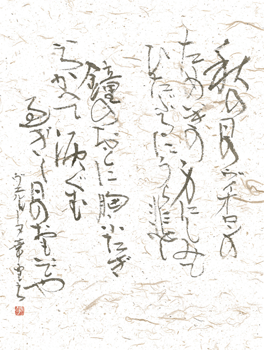 秋の日のヴィオロンの
ためいきの身にしみて
ひたぶるにうら悲し
鐘のおとに胸ふたぎ
色かへて涙ぐむ
過ぎし日のおもひでや
ヴェルレーヌ